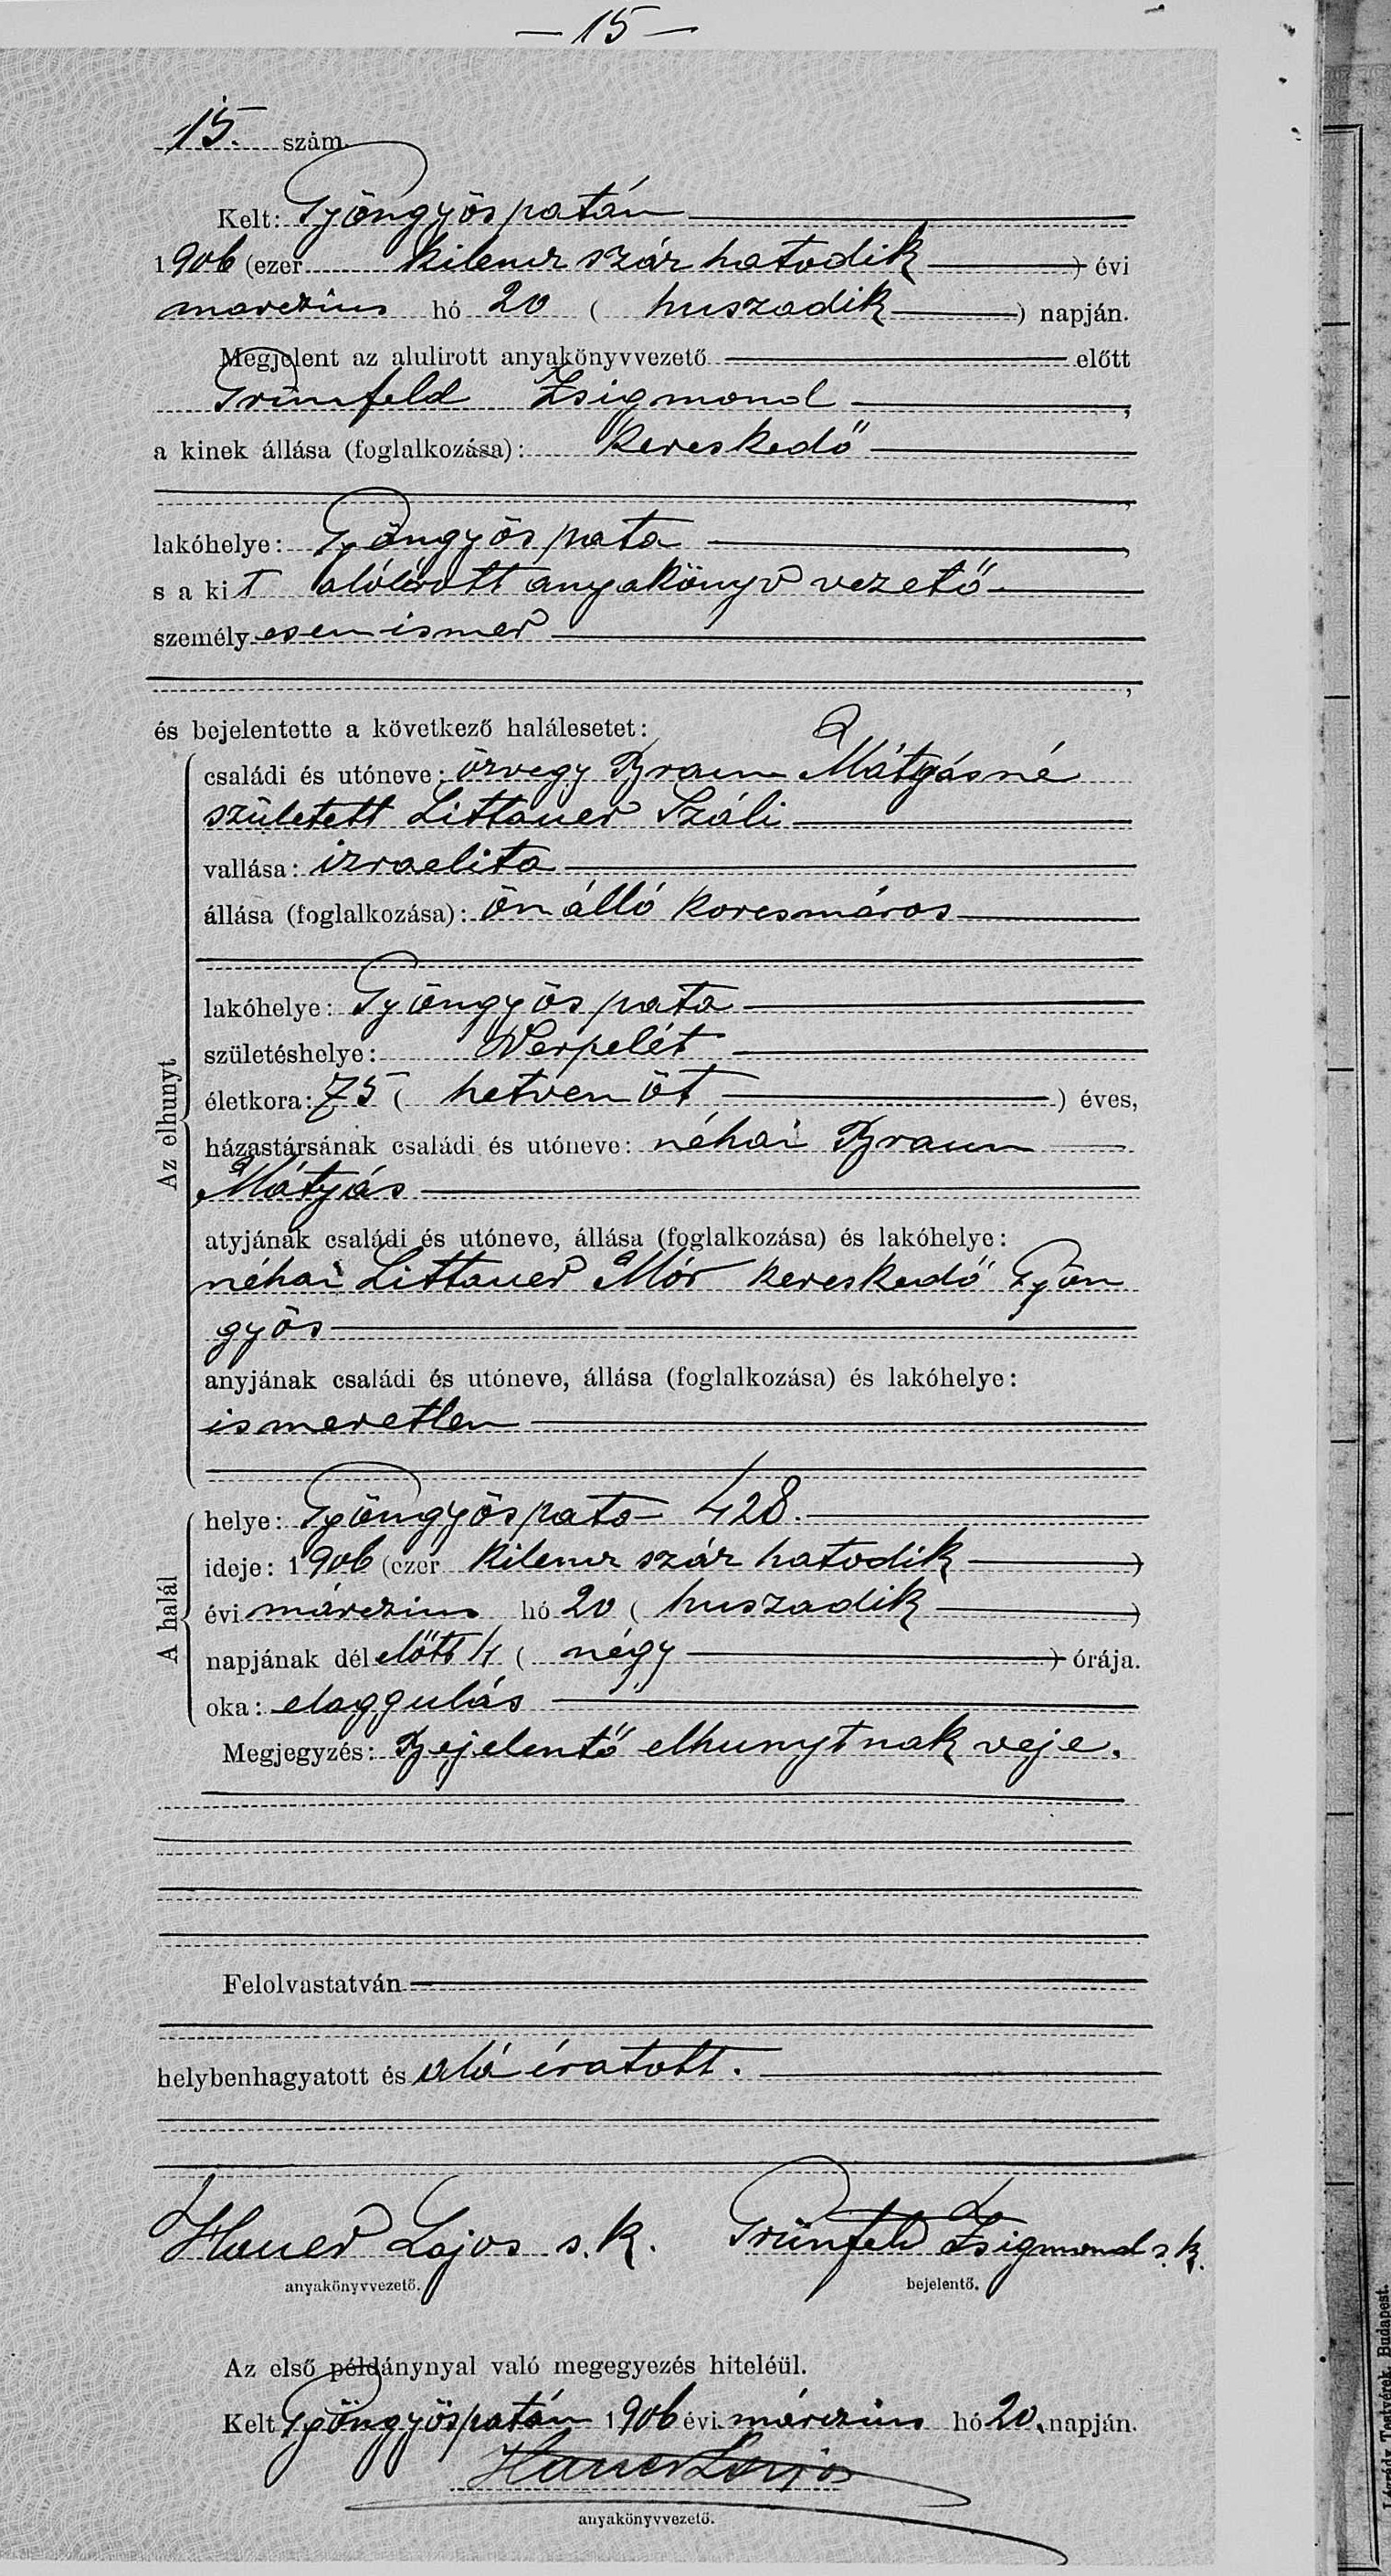 — 15 —
15. szám.
Kelt: Gyöngyöspatán
1906 (ezer kilencz száz hatodik) évi
marczius hó 20 (huszadik) napján.
Megjelent az alulirott anyakönyvvezető előtt
Grünfeld Zsigmond,
a kinek állása (foglalkozása): kereskedő
,
lakóhelye: Gyöngyös pata,
s a kit alólírott anyakönyv vezető
személyesen ismer
,
és bejelentette a következő halálesetet:
Az elhunyt
családi és utóneve: özvegy Braun Mátyásné
született Littauer Száli
vallása: izraelita
állása (foglalkozása): önálló korcsmáros
lakóhelye: Gyöngyös pata
születéshelye: Verpelét
életkora: 75 (hetven öt) éves,
házastársának családi és utóneve: néhai Braun
Mátyás
atyjának családi és utóneve, állása (foglalkozása) és lakóhelye:
néhai Littauer Mór kereskedő Gyön
gyös
anyjának családi és utóneve, állása (foglalkozása) és lakóhelye:
ismeretlen
A halál
helye: Gyöngyöspata 428.
ideje: 1906 (ezer kilencz száz hatodik)
évi márczius hó 20 (huszadik)
napjának délelőtt 4 (négy) órája.
oka: elaggulás
Megjegyzés: Bejelentő elhunytnak veje.
Felolvastatván
helybenhagyatott és aláíratott.
Hauer Lajos s. k. Grünfeld Zsigmond s. k.
anyakönyvvezető. bejelentő.
Az első példánynyal való megegyezés hiteléül.
Kelt Gyöngyöspatán 1906 évi márczius hó 20. napján.
Hauer Lajos
anyakönyvvezető.
Légrády Testvérek, Budapest.